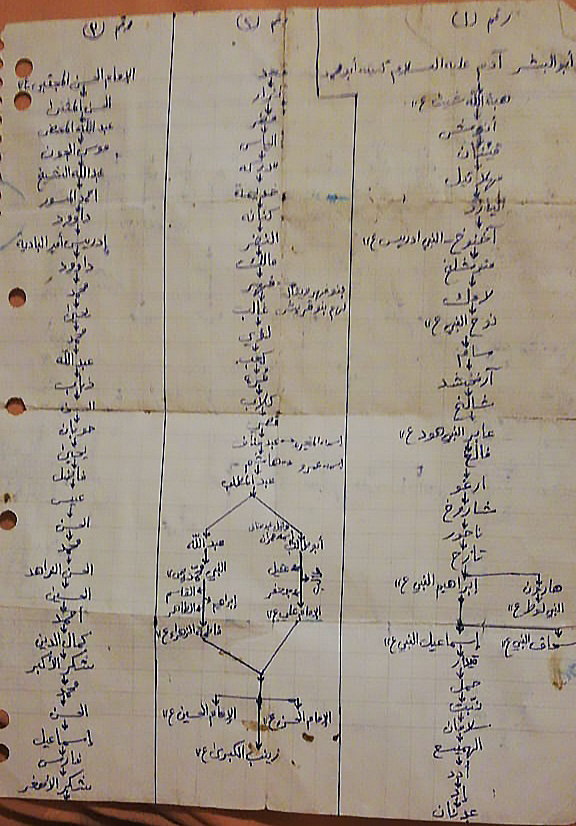 رقم (١)
أبو البشر آدم عليه السلام
هبة الله شيث ع
أنوش
قينان
مهلائيل
اليارد
أخنوخ - النبي ادريس ع
متوشلخ
لامك
نوح النبي ع
سام
أرفخشد
شالخ
عابر النبي هود ع
فالغ
ارغو
شاروخ
ناحور
تارخ
ابراهيم النبي ع
هاران
النبي لوط ع
اسماعيل النبي ع
اسحاق النبي ع
قيدار
حمل
نبت
سلامان
الهميسع
عدنان
رقم (٢)
معد
نزار
مضر
الياس
مدركة
خزيمة
كنانة
النضر
مالك
فهر
غالب
لؤي
كعب
مرة
كلاب
قصي
عبد مناف
هاشم
عبد المطلب
أبو طالب
عبد الله
عقيل
جعفر
الامام علي ع
النبي محمد
القاسم
الطاهر
ابراهيم
فاطمة الزهراء ع
الامام الحسن ع
الامام الحسين ع
زينب الكبرى ع
رقم (٣)
الامام الحسن المجتبى ع
الحسن المثنى
عبد الله المحض
موسى الجون
عبد الله الشيخ
داوود
ادريس أمير البادية
داوود
محمد
يحيى
محمد
عبد الله
يحيى
عيسى
الحسن
محمد
الحسن الزاهد
الحسين
أحمد
كمال الدين
شكر الأكبر
محمد
الحسن
اسماعيل
فارس
شكر الأصغر